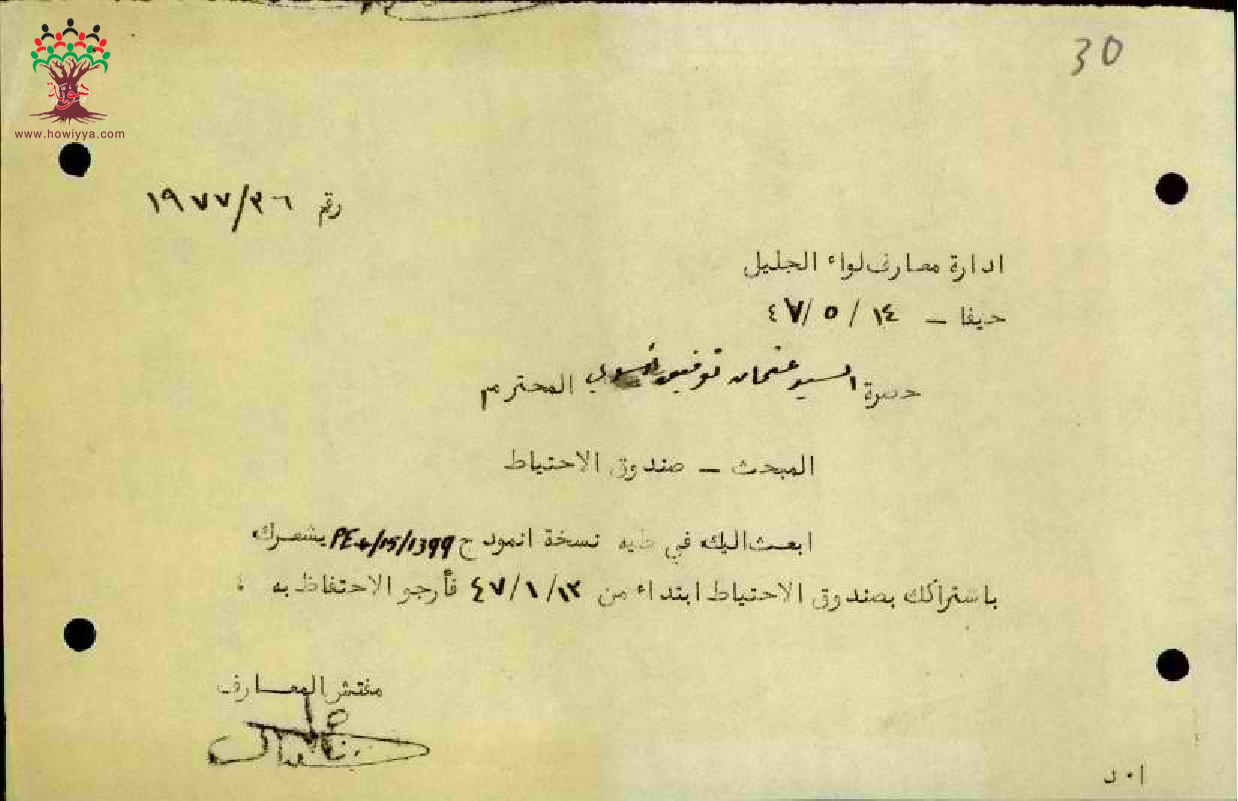 30
هوية
www.howiyya.com
رقم ١٩٧٧/٣٦
ادارة معارف لواء الجليل
حيفا – ١٤ / ٥ / ٤٧
حضرة السيد عثمان توفيق المحترم
المبحث – صندوق الاحتياط
ابعث اليك في طيه نسخة انموذج PE4/15/1399 يشعرك
باشتراكك بصندوق الاحتياط ابتداء من ٤٧/١/١٣ فأرجو الاحتفاظ به ،
مفتش المعارف
ا ٠ د